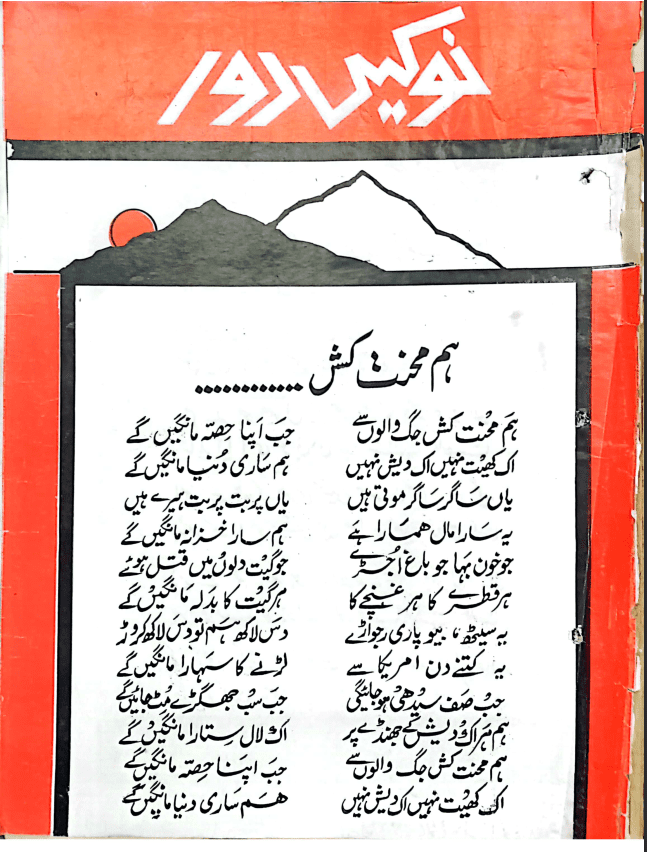 نوکیں دور
ہم محنت کش ............
ہم محنت کش جگ والوں سے جب اپنا حصہ مانگیں گے
اک کھیت نہیں اک دیش نہیں ہم ساری دنیا مانگیں گے
یاں ساگر ساگر موتی ہیں یاں پربت پربت ہیرے ہیں
یہ سارا مال ھمارا ہے ہم سارا خزانہ مانگیں گے
جو خون بہا جو باغ اجڑے جو گیت دلوں میں قتل ہوئے
ہر قطرے کا ہر غنچے کا ہر گیت کا بدلہ مانگیں گے
یہ سیٹھ، بیوپاری رجواڑے دس لاکھ ہم تو دس لاکھ کروڑ
یہ کتنے دن امریکا سے لڑنے کا سہارا مانگیں گے
جب صف سیدھی ہو جائیگی جب سب جھگڑے مٹ جائیں گے
ہم ہر اک دیش کے جھنڈے پر اک لال ستارا مانگیں گے
ہم محنت کش جگ والوں سے جب اپنا حصہ مانگیں گے
اک کھیت نہیں اک دیش نہیں ھم ساری دنیا مانگیں گے